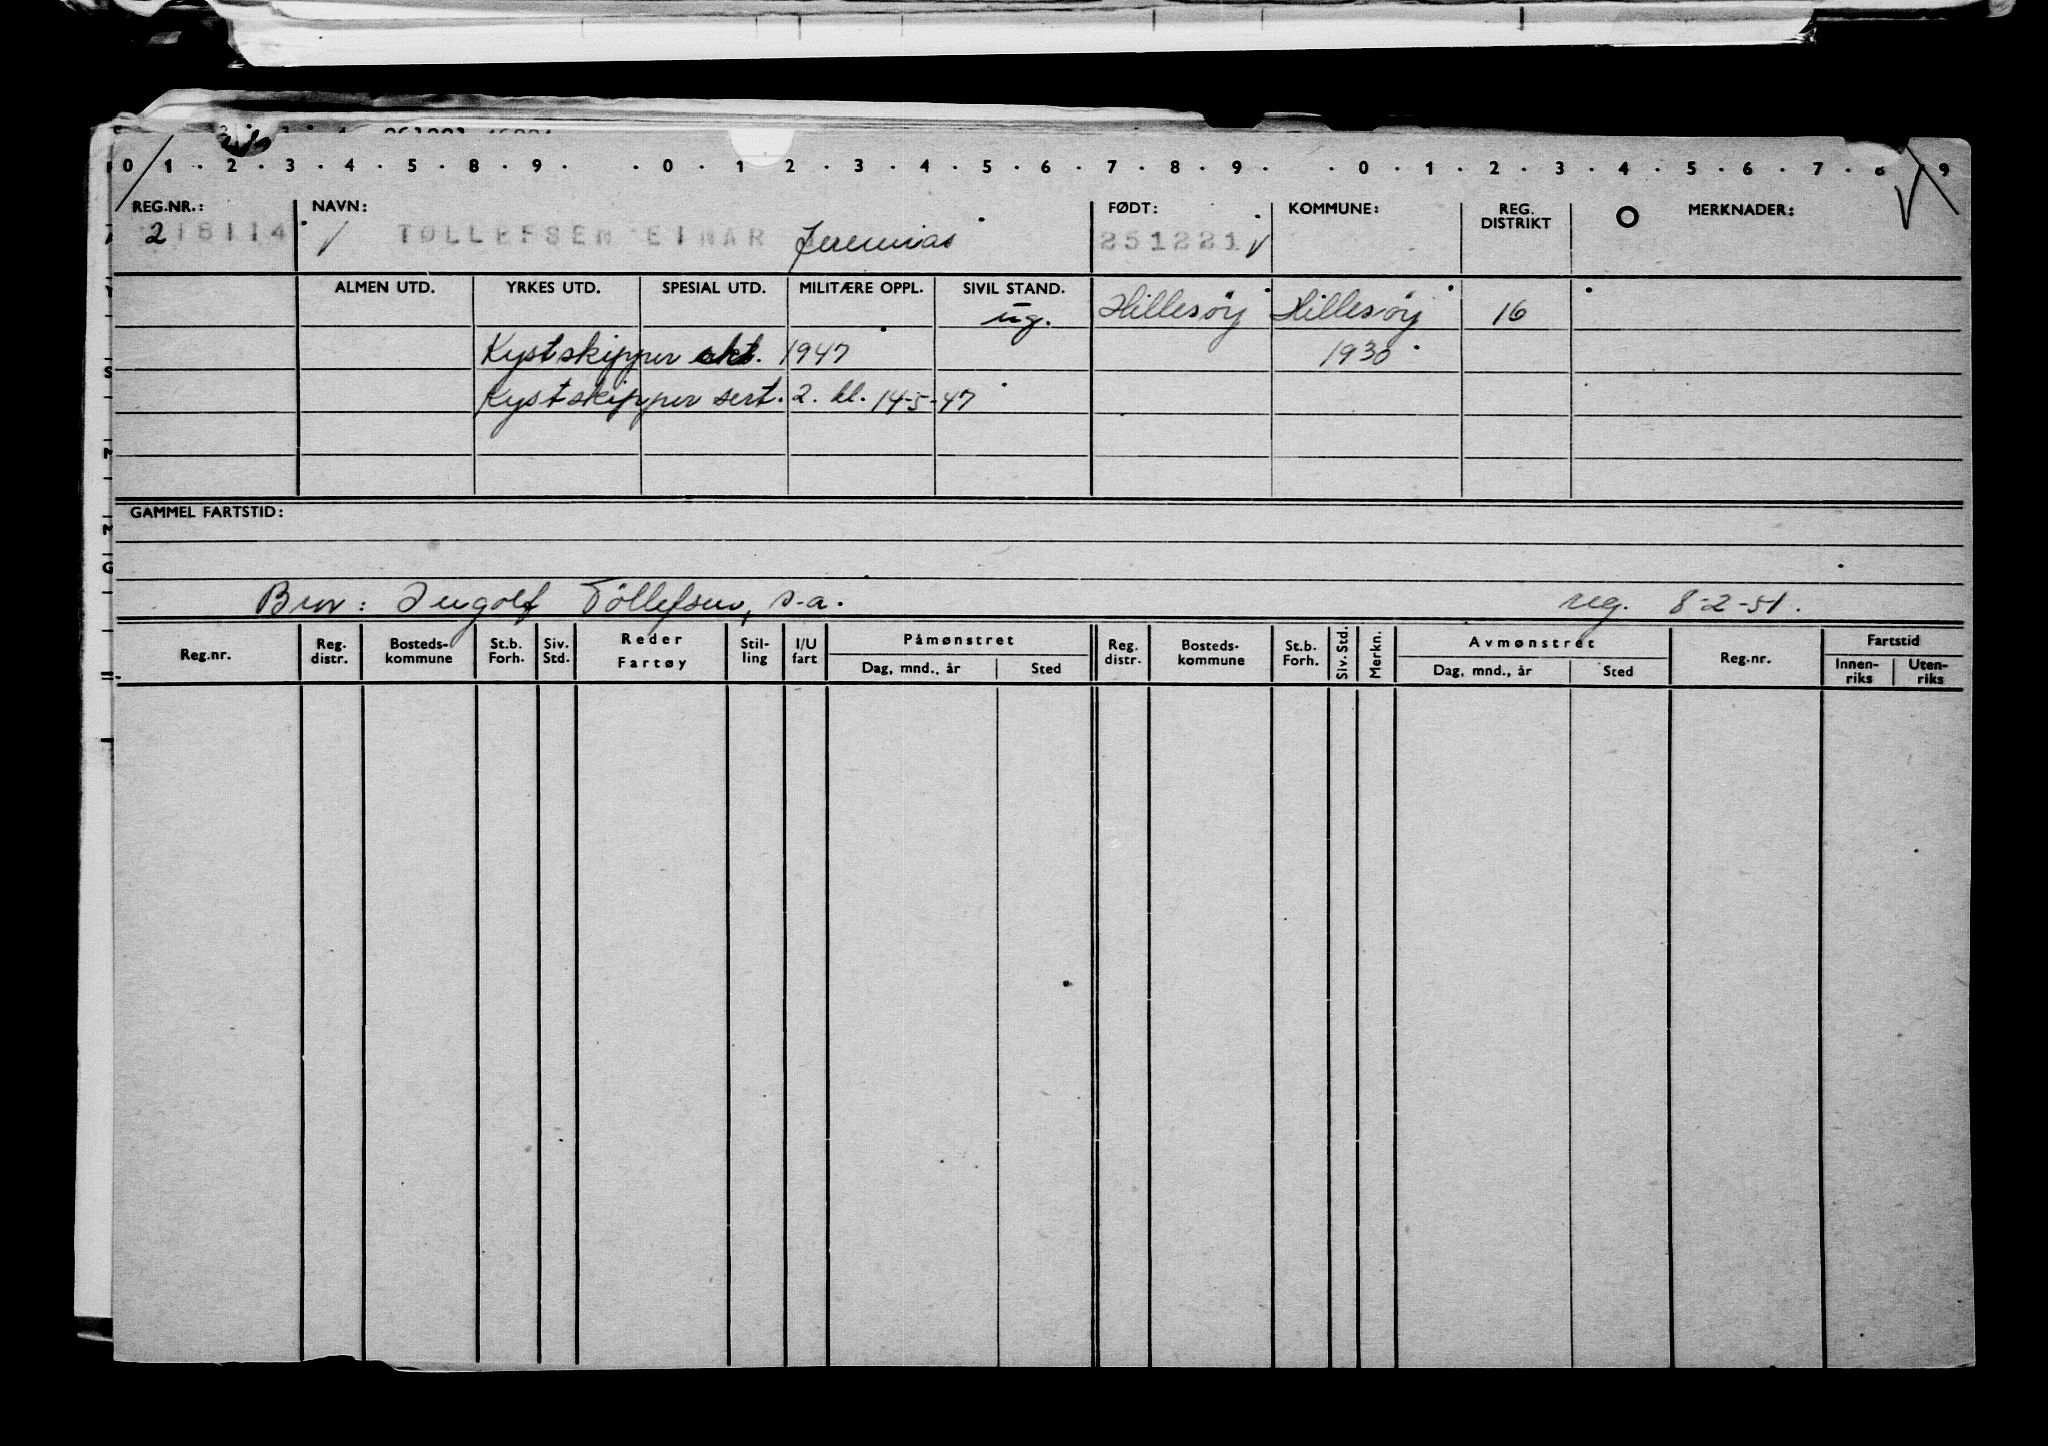 0 1 . 2 . 3 . 4 . 5 . 8 . 9 . . 0 . 1 2 . 3 . 4 . 5 . 6 . 7 . 8 . 9 . . 0 . 1 . 2 . 3 . 4 . 5 . 6 . 7 . 8 9
REG.NR.: NAVN: FØDT: KOMMUNE: REG. DISTRIKT MERKNADER:
2 18114 TØLLEFSEN EINAR Jeremias 251221
ALMEN UTD. YRKES UTD. SPESIAL UTD. MILITÆRE OPPL. SIVIL STAND.
ug. Hillesöy Hillesöy 16
Kystskipper 1947 1930
Kystskipper sert. 2. kl. 14-5-47
GAMMEL FARTSTID:
Bror: Ingolf Töllefsen, s.a. reg. 8-2-51.
Reg.nr. Reg. distr. Bosteds-kommune St.b. Forh. Siv. Std. Reder Fartøy Stil-ling I/U fart Påmønstret Reg. distr. Bosteds-kommune St.b. Forh. Siv. Std. Merkn. Avmønstret Reg.nr. Fartstid
Dag, mnd., år Sted Dag, mnd., år Sted Innen-riks Uten-riks